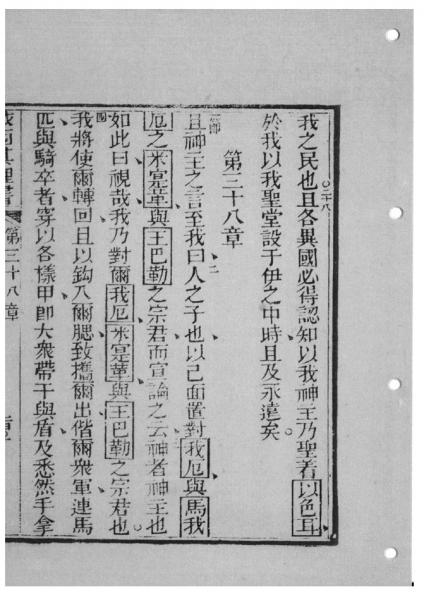 我之民也且各異國必得認知以我神王乃聖着以色耳
二十八
於我以我聖堂設于伊之中時且及永遠矣
第三十八章
一節
且神王之言至我曰人之子也以己面置對我厄與馬我
二
厄之米寔葷與王巴勒之宗君而宣諭之云神者神王也
三
如此曰視哉我乃對爾我厄米寔葷與王巴勒之宗君也
四
我將使爾轉回且以鈎入爾腮致攜爾出偕爾衆軍連馬
匹與騎卒者穿以各樣甲即大衆帶干與盾及悉然手拿
第三十八章